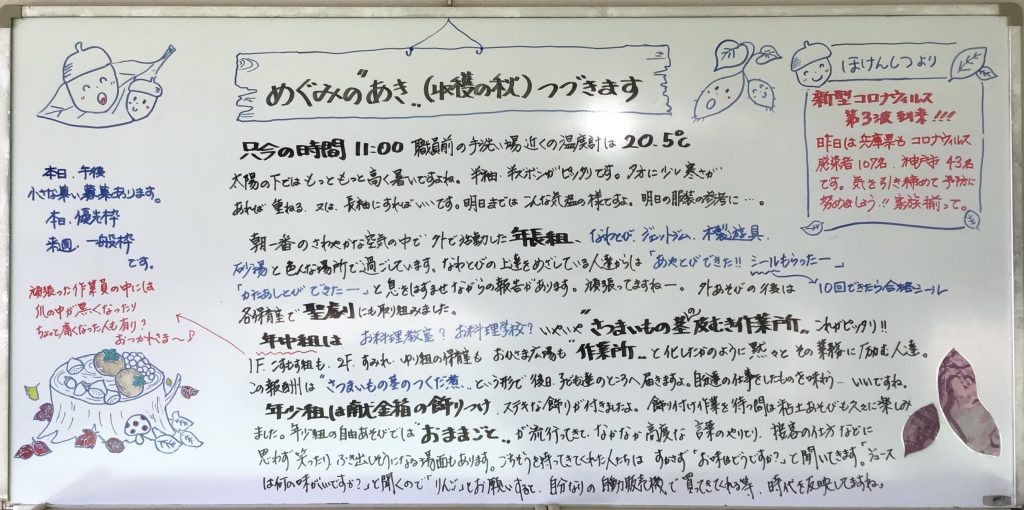 めぐみのあき (収穫の秋) つづきます
只今の時間 11:00 職員前の手洗い場近くの温度計は 20.5℃
太陽の下ではもっともっと高く暑いですよね。半袖・半ズボンがピッタリです。夕方に少し寒さが
あれば 重ねる、又は、長袖にすればいいです。明日までは こんな気温の様ですよ。明日の服装の参考に…。
朝一番の さわやかな空気の中で 外で活動した 年長組、なわとび、ジャットジム、木製遊具、
砂場と 色んな場所で 過ごしています。なわとびの上達をめざしている人達からは「あやとびできた!! シールもらったー」
「かたあしとび できたー」と 息をはずませながらの報告があります。頑張ってますねー。 外あそびの後は
10回できたら合格シール
各保育室で 聖劇りにも取り組みました。
年中組は お料理教室? お料理学校? いやいや "さつまいもの茎の皮むき作業所" これがピッタリ!!
1F. こすもす組も、2F. すみれ・ゆり組の保育室も おひさま広場も "作業所" と化したかのように 黙々と その業務に励む人達。
この報酬は "さつまいもの茎のつくだ煮" という形で 後日、子ども達のところへ届きますよ。自分達の仕事をしたものを味わう… いいですね。
年少組は献金箱の飾りつけ、ステキな飾りが付きましたよ。飾り付け作業を待つ間は 粘土あそびも久々に楽しみ
ました。年少組の自由あそびでは "おままごと" が 流行ってきて、なかなか高度な 言葉のやりとり、接客の仕方などに
思わず 笑ったり、ふき出しそうになる場面もあります。ごちそうを持ってきてくれた人たちは すかさず「お味はどうですか?」と聞いてきます。「ジュース
は何の味がいいですか?」と聞くので「りんご」とお願いすると、自分なりの 自動販売機で 買ってきてくれる等、時代を反映してますね。
本日、午後
小さな集い募集あります。
本日、優先枠
来週、一般枠
です。
頑張った作業員の中には
爪の中が黒くなったり
ちょっと痛くなった人も有り?
おつかれさま〜♪
ほけんしつより
新型コロナウィルス
第3波到来!!!
昨日は兵庫県もコロナウィルス
感染者107名、神戸市43名
です。気を引き締めて予防に
努めましょう!! 家族揃って。